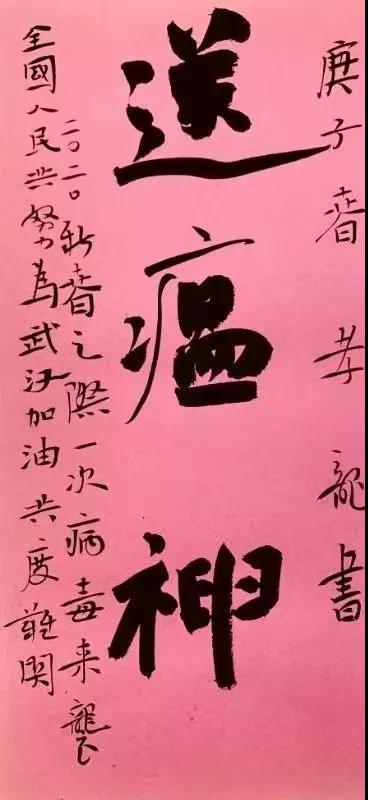 庚子春孝龍書
送瘟神
二〇二〇新春之際一次病毒来襲
全國人民共努力為武汉加油共度難関